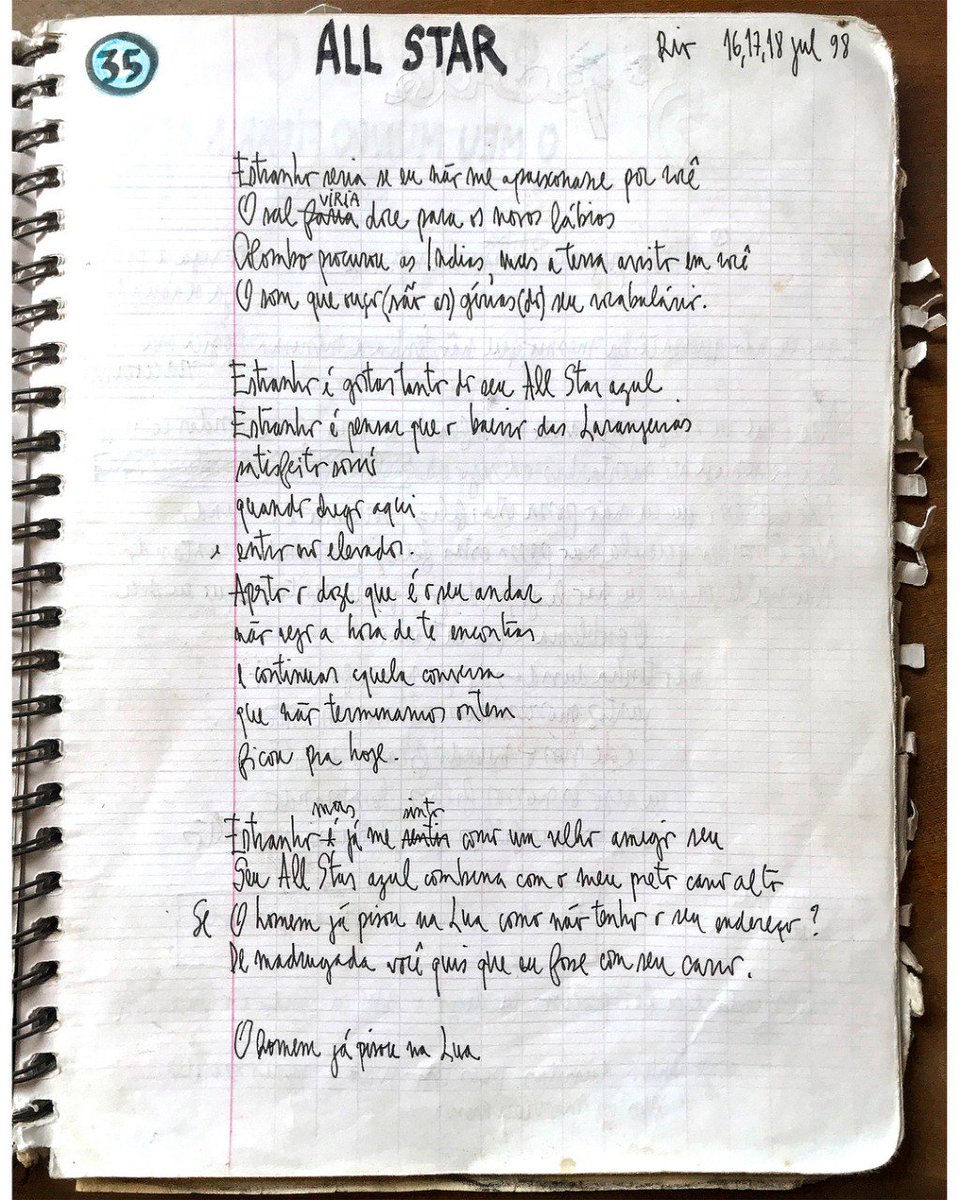 35
ALL STAR
Rio 16,17,18 jul 98
Estranho seria se eu não me apaixonasse por você
VIRIA
O sal faria doce para os novos lábios
Colombo procurou as Índias, mas a terra avisto em você
O som que ouço (são as) gírias (do) seu vocabulário.
Estranho é gostar tanto do seu All Star azul
Estranho é pensar que o bairro das Laranjeiras
satisfeito sorri
quando chego aqui
e entro no elevador.
Aperto o doze que é o seu andar
não vejo a hora de te encontrar
e continuar aquela conversa
que não terminamos ontem
ficou pra hoje.
mas sinto
Estranho é já me sentir como um velho amigo seu
Seu All Star azul combina com o meu preto cano alto
Se O homem já pisou na Lua como não tenho o seu endereço?
De madrugada você quis que eu fosse com seu carro.
O homem já pisou na Lua